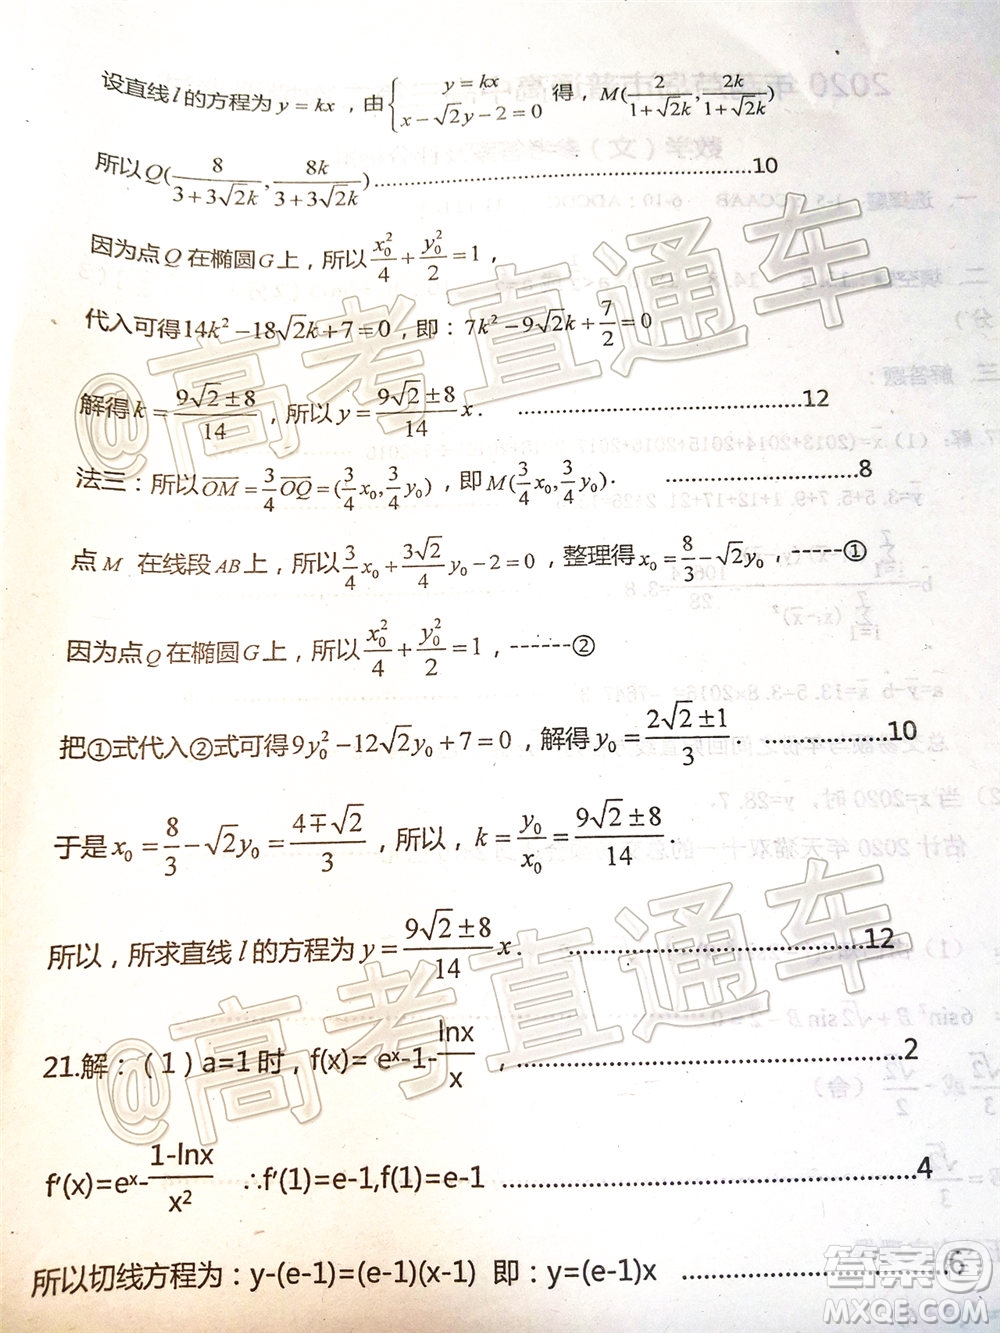 设直线 l 的方程为 y = kx，由{y = kx, x − √2y − 2 = 0 得，M(2/(1+√2k), 2k/(1+√2k))
所以 Q(8/(3+3√2k), 8k/(3+3√2k))..........10
因为点 Q 在椭圆 G 上，所以 x₀²/4 + y₀²/2 = 1，
代入可得14k² − 18√2k + 7 = 0，即：7k² − 9√2k + 7/2 = 0
解得 k = (9√2 ± 8)/14，所以 y = (9√2 ± 8)/14 x. ..........12
法三：所以 OM = 3/4 OQ = (3/4 x₀, 3/4 y₀)，即 M(3/4 x₀, 3/4 y₀). ..........8
点 M 在线段 AB 上，所以 3/4 x₀ + 3√2/4 y₀ − 2 = 0，整理得 x₀ = 8/3 − √2y₀，------①
因为点 Q 在椭圆 G 上，所以 x₀²/4 + y₀²/2 = 1，------②
把①式代入②式可得 9y₀² − 12√2y₀ + 7 = 0，解得 y₀ = (2√2 ± 1)/3. ..........10
于是 x₀ = 8/3 − √2y₀ = (4 ∓ √2)/3，所以，k = y₀/x₀ = (9√2 ± 8)/14
所以，所求直线 l 的方程为 y = (9√2 ± 8)/14 x. ..........12
21.解：（1）a=1 时，f(x)= eˣ-1-lnx/x，..........2
f′(x)=eˣ-(1-lnx)/x² ∴f′(1)=e-1,f(1)=e-1 ..........4
所以切线方程为：y-(e-1)=(e-1)(x-1) 即：y=(e-1)x ..........6
@高考直通车
@高考直通车
答案圈
MXQE.COM